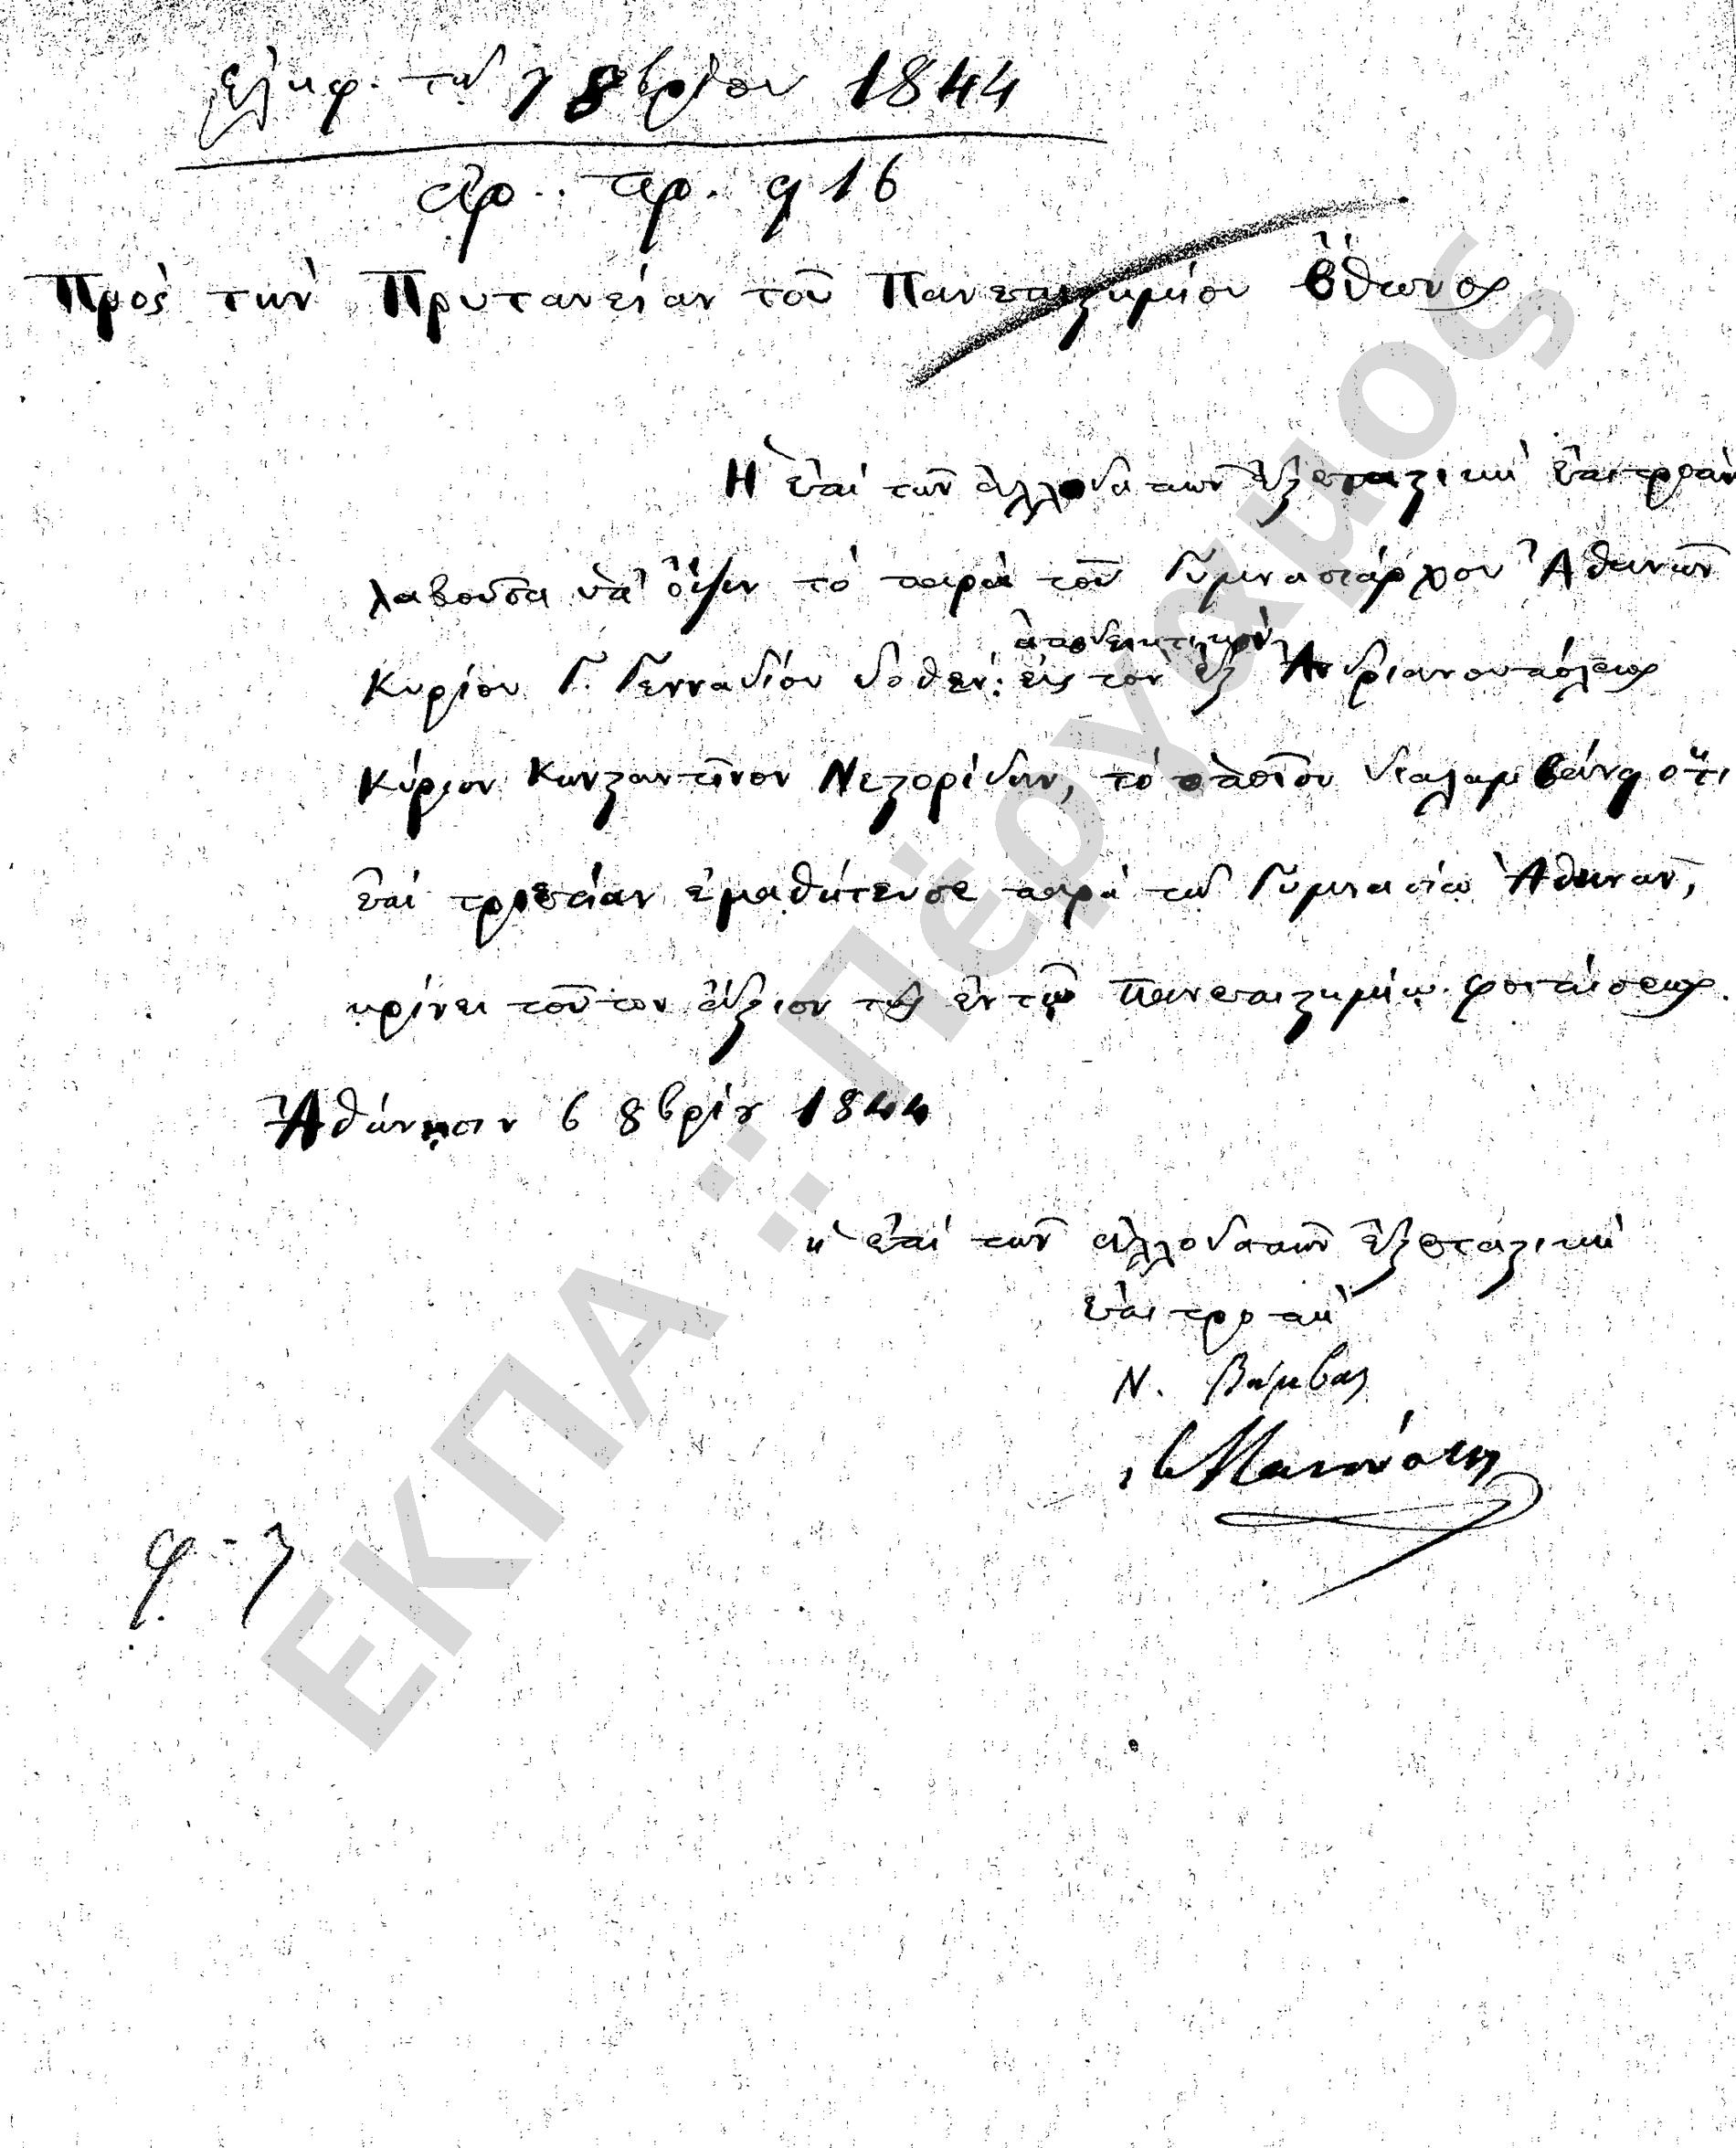 ἐλήφ. τῇ 7 8βρίου 1844
ἀρ. πρ. 916
Πρὸς τὴν Πρυτανείαν τοῦ Πανεπιστημίου Ὄθωνος
Ἡ ἐπὶ τῶν ἀλλοδαπῶν ἐξεταστικὴ ἐπιτροπὴ
λαβοῦσα ὑπ' ὄψιν τὸ παρὰ τοῦ Γυμνασιάρχου Ἀθηνῶν
ἀποδεικτικὸν
Κυρίου Γ. Γενναδίου δοθὲν εἰς τὸν ἐξ Ἀνδριανουπόλεως
Κύριον Κωνσταντῖνον Νεστορίδην, τὸ ὁποῖον διαλαμβάνει ὅτι
ἐπὶ τριετίαν ἐμαθήτευσε παρὰ τῷ Γυμνασίῳ Ἀθηνῶν,
κρίνει τοῦτον ἄξιον τῆς ἐν τῷ Πανεπιστημίῳ φοιτήσεως.
Ἀθήνησιν 6 8βρίου 1844
ἡ ἐπὶ τῶν ἀλλοδαπῶν ἐξεταστικὴ
ἐπιτροπὴ
Ν. Βάμβας
ΕΚΠΑ :: Πέργαμος